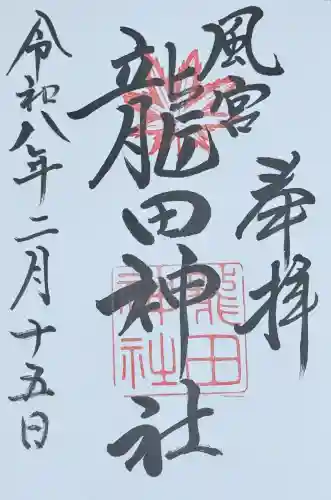 奉拝
風宮
龍田神社
令和八年二月十五日
龍田
神社